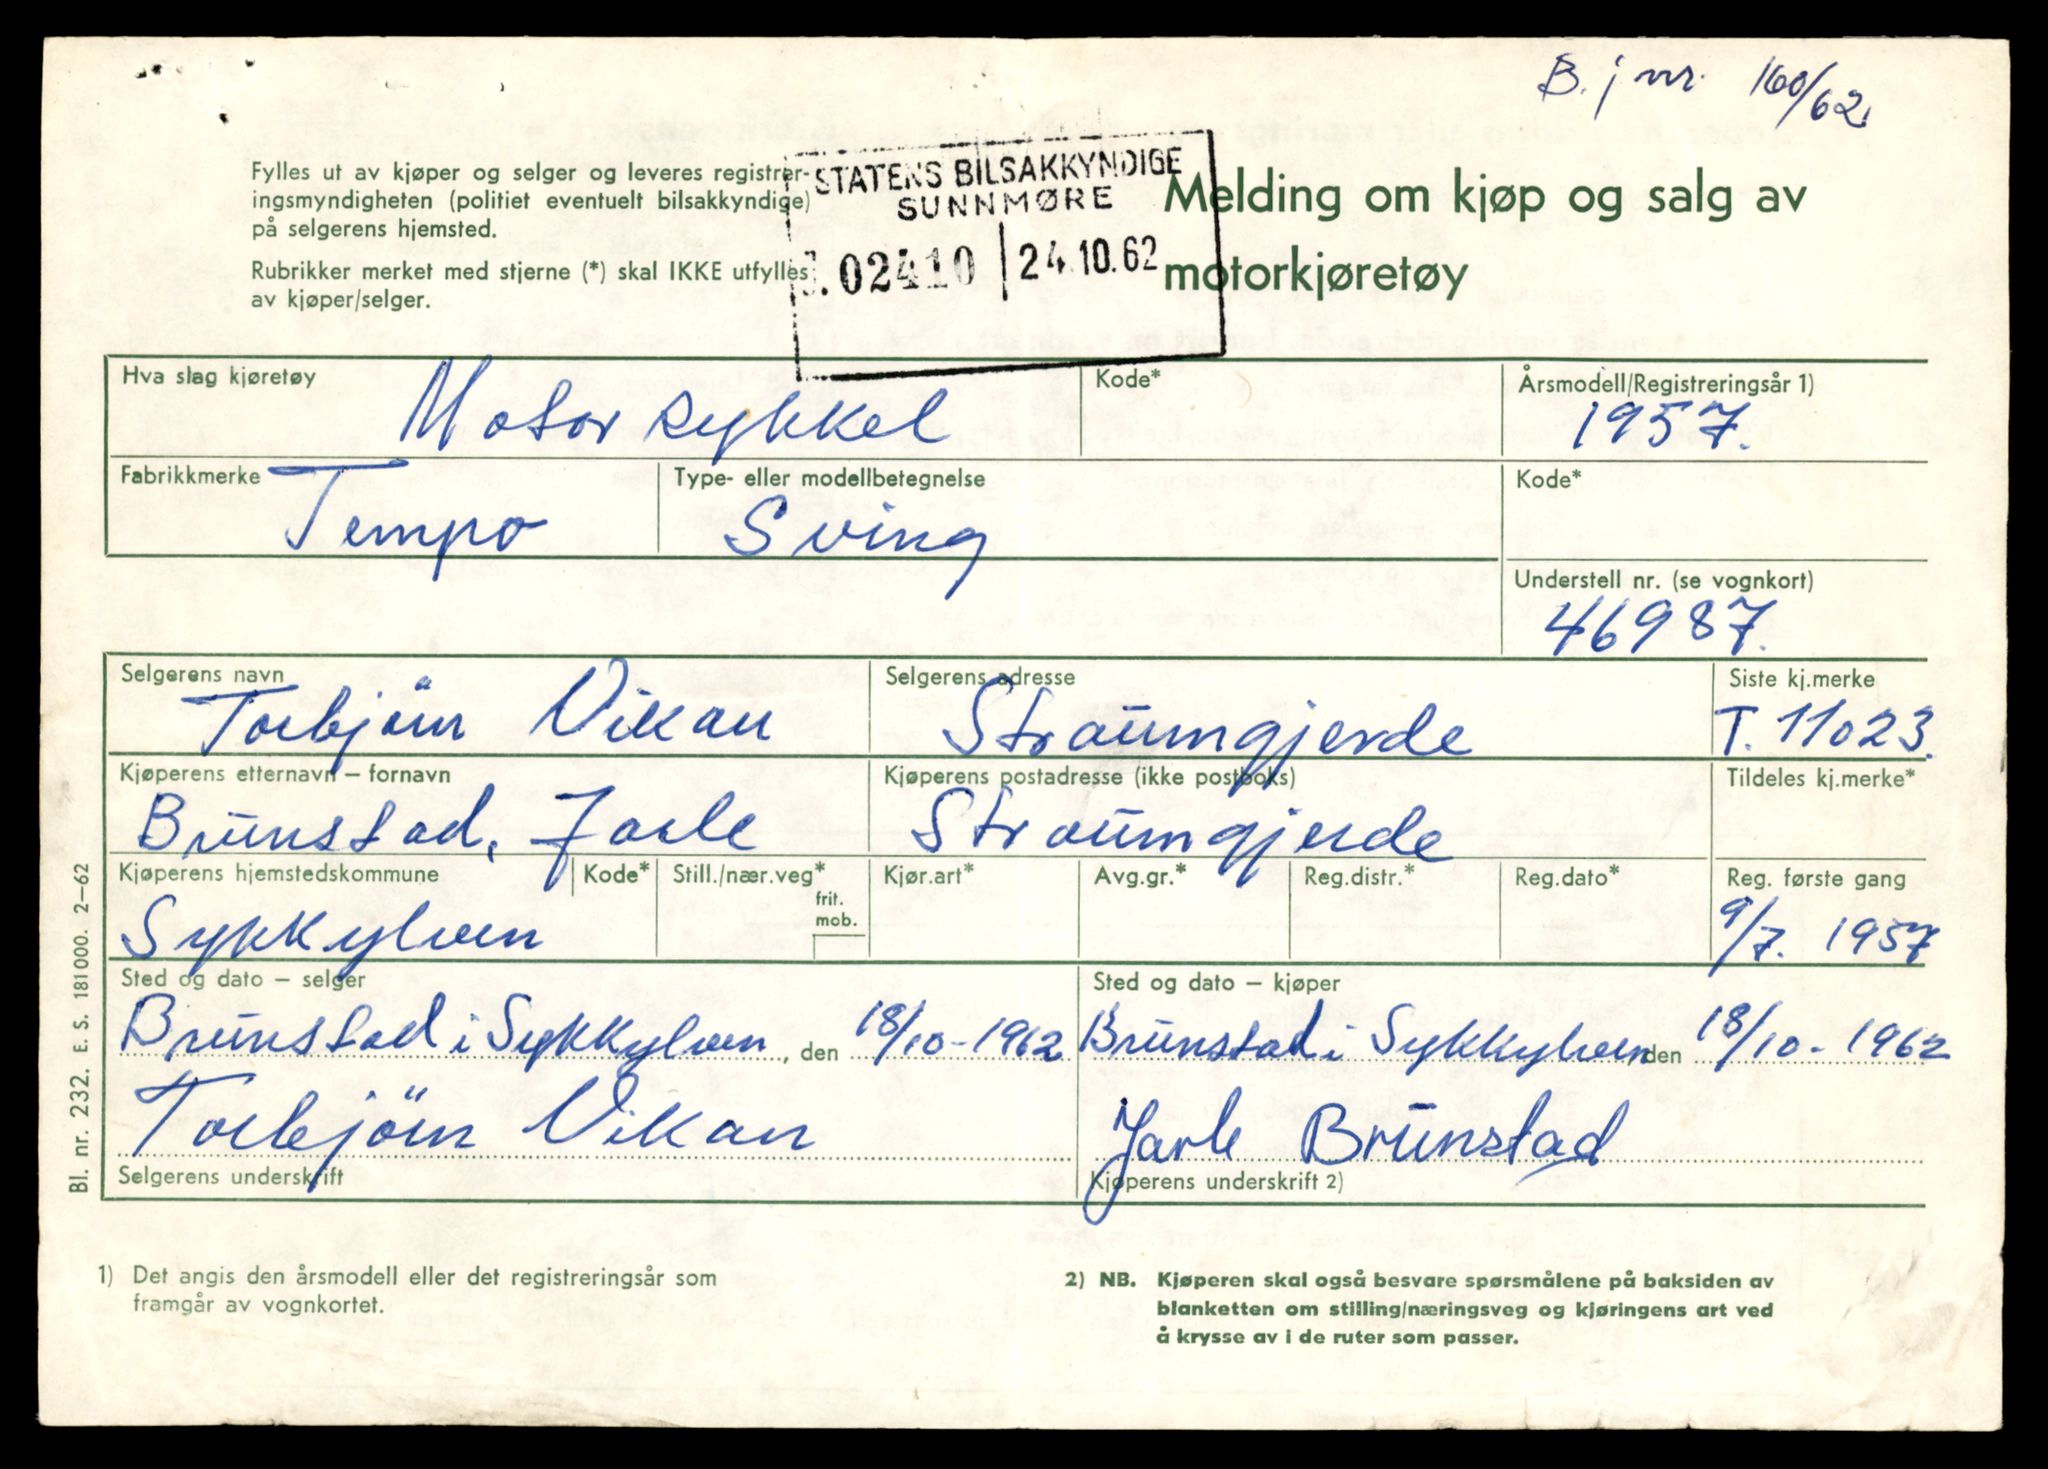 B. j nr. 160/62
Fylles ut av kjøper og selger og leveres registrer-
ingsmyndigheten (politiet eventuelt bilsakkyndige)
på selgerens hjemsted.
Rubrikker merket med stjerne (*) skal IKKE utfylles
av kjøper/selger.
STATENS BILSAKKYNDIGE
SUNNMØRE
J. 02410 24.10.62
Melding om kjøp og salg av
motorkjøretøy
Hva slag kjøretøy Kode* Årsmodell/Registreringsår 1)
Motorsykkel 1957.
Fabrikkmerke Type- eller modellbetegnelse Kode*
Tempo Sving
Understell nr. (se vognkort)
46987.
Selgerens navn Selgerens adresse Siste kj.merke
Torbjörn Vikan Straumgjerde T. 11023.
Kjøperens etternavn – fornavn Kjøperens postadresse (ikke postboks) Tildeles kj.merke*
Brunstad, Jarle Straumgjerde
Kjøperens hjemstedskommune Kode* Still./nær.veg* Kjør.art* Avg.gr.* Reg.distr.* Reg.dato* Reg. første gang
frit.
mob.
Sykkylven 9/7. 1957
Sted og dato – selger Sted og dato – kjøper
Brunstad i Sykkylven, den 18/10-1962 Brunstad i Sykkylven, den 18/10-1962
Torbjörn Vikan Jarle Brunstad
Selgerens underskrift Kjøperens underskrift 2)
Bl. nr. 232. E. S. 181000. 2–62
1) Det angis den årsmodell eller det registreringsår som
framgår av vognkortet.
2) NB. Kjøperen skal også besvare spørsmålene på baksiden av
blanketten om stilling/næringsveg og kjøringens art ved
å krysse av i de ruter som passer.